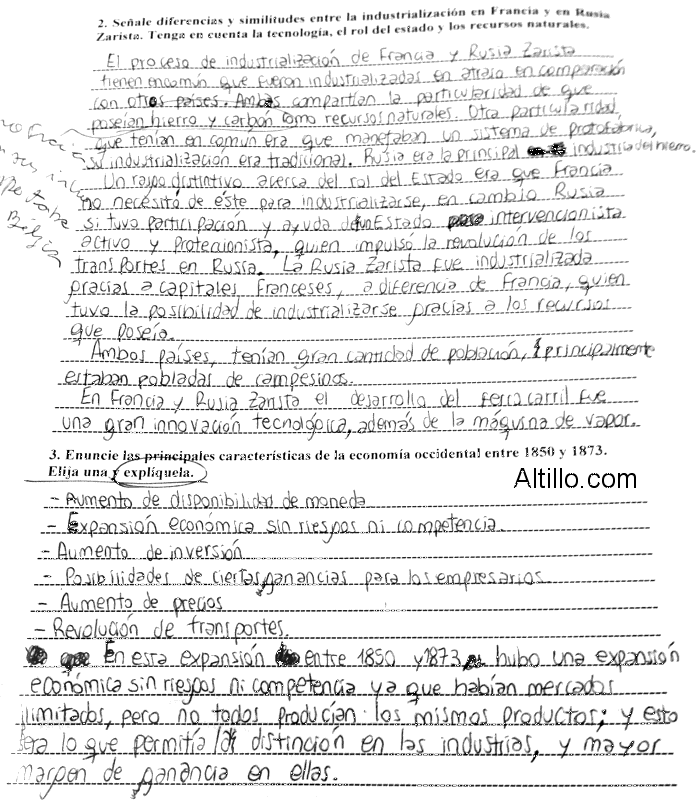 2. Señale diferencias y similitudes entre la industrialización en Francia y en Rusia
Zarista. Tenga en cuenta la tecnología, el rol del estado y los recursos naturales.
El proceso de industrialización de Francia y Rusia Zarista
tienen encomún que fueron industrializadas en atraso en comparación
con otros países. Ambas compartían la particularidad de que
poseían hierro y carbón como recursos naturales. Otra particularidad,
que tenían en común era que manejaban un sistema de protofabrica,
su industrialización era tradicional. Rusia era la principal industria del hierro.
Un rasgo distintivo acerca del rol del Estado era que Francia
no necesitó de éste para industrializarse, en cambio Rusia
si tuvo participación y ayuda de un Estado intervencionista
activo y proteccionista, quien impulsó la revolución de los
transportes en Russia. La Rusia Zarista fue industrializada
gracias a capitales Franceses, a diferencia de Francia, quien
tuvo la posibilidad de industrializarse gracias a los recursos
que poseía.
Ambos países, tenían gran cantidad de población, principalmente
estaban pobladas de campesinos.
En Francia y Rusia Zarista el desarrollo del ferrocarril fue
una gran innovación tecnológica, además de la máquina de vapor.
Bélgica
3. Enuncie las principales características de la economía occidental entre 1850 y 1873.
Elija una y explíquela.
Altillo.com
- Aumento de disponibilidad de moneda
- Expansión económica sin riesgos ni competencia
- Aumento de inversión
- Posibilidades de ciertas ganancias para los empresarios
- Aumento de precios
- Revolución de transportes.
En esta expansión entre 1850 y 1873, hubo una expansión
económica sin riesgos ni competencia ya que habían mercados
ilimitados, pero no todos producían los mismos productos; y esto
era lo que permitía la distinción en las industrias, y mayor
margen de ganancia en ellas.